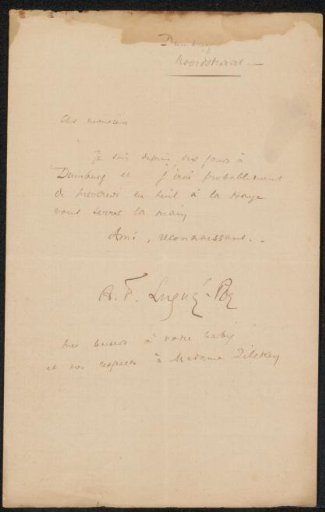 Domburg
Noordstraat. —
Cher monsieur
Je suis depuis des jours à
Domburg et j'irai probablement
de en huit à la Haye
vous serrer la main
Ami, reconnaissant. -
A. F. Lugné-Poe
Des baisers à votre baby
et nos respects à Madame Zilcken